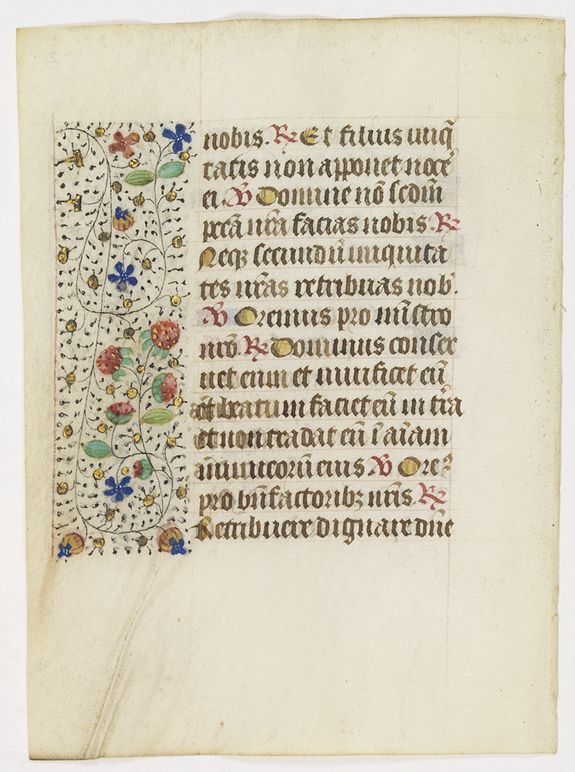 nobis. R̸ Et filius iniq̄
tatis non apponet nocē
ei V̸ Domine nō sedm̄
pccā nrā facias nobis R̸
Neqꝫ secundū iniquita
tes nr̄as retribuas nob̄.
V̸ Oremus pro mīstro
nr̄o. R̸ Dominus conser
uet eum et uiuificet eū
et beatum faciet eū in trā
et non tradat eū ī aīam
inimicorū eius V̸ Ore
pro bn̄factoribꝫ nr̄is R̸
Retribuere dignare dn̄e